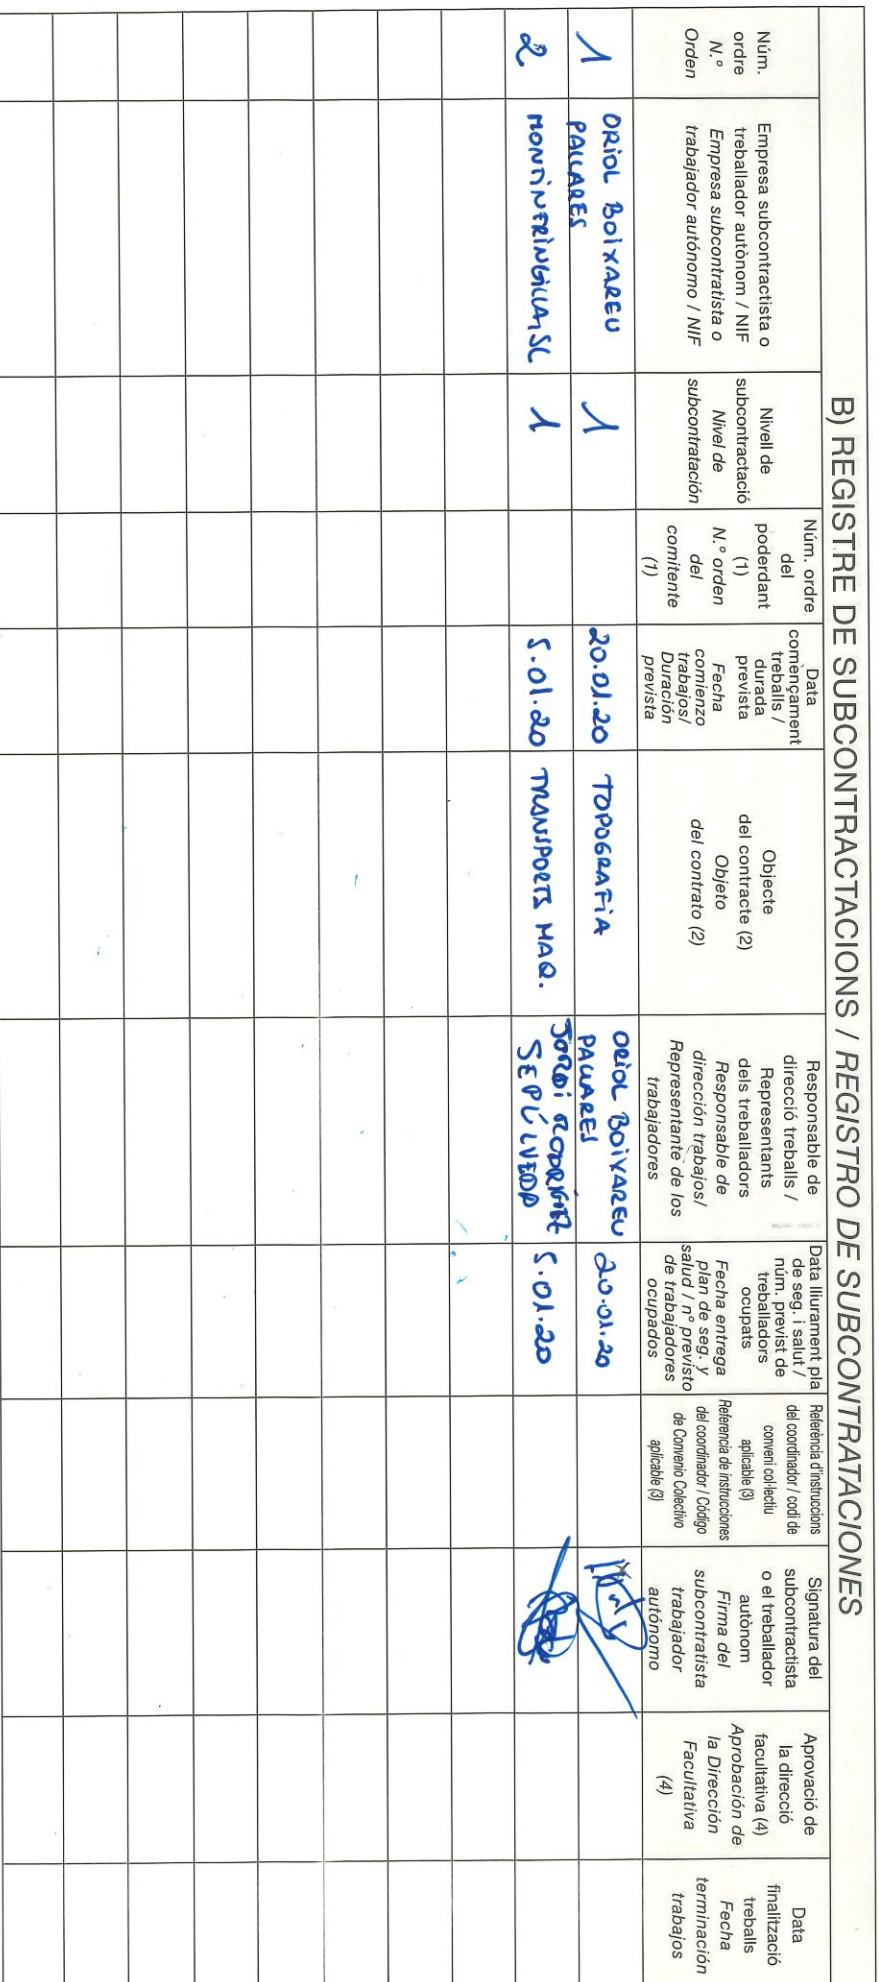 B) REGISTRE DE SUBCONTRACTACIONS / REGISTRO DE SUBCONTRATACIONES
Núm.
ordre
N.º
Orden
Empresa subcontractista o
treballador autònom / NIF
Empresa subcontratista o
trabajador autónomo / NIF
Nivell de
subcontractació
Nivel de
subcontratación
Núm. ordre
del
poderdant
(1)
N.º orden
del
comitente
(1)
Data
començament
treballs /
durada
prevista
Fecha
comienzo
trabajos/
Duración
prevista
Objecte
del contracte (2)
Objeto
del contrato (2)
Responsable de
direcció treballs /
Representants
dels treballadors
Responsable de
dirección trabajos/
Representante de los
trabajadores
Data lliurament pla
de seg. i salut /
núm. previst de
treballadors
ocupats
Fecha entrega
plan de seg. y
salud / nº previsto
de trabajadores
ocupados
Referència d'instruccions
del coordinador / codi de
conveni col·lectiu
aplicable (3)
Referencia de instrucciones
del coordinador / Código
de Convenio Colectivo
aplicable (3)
Signatura del
subcontractista
o el treballador
autònom
Firma del
subcontratista
trabajador
autónomo
Aprovació de
la direcció
facultativa (4)
Aprobación de
la Dirección
Facultativa
(4)
Data
finalització
treballs
Fecha
terminación
trabajos
1
ORIOL BOIXAREU
PALLARES
1
20.01.20
TOPOGRAFIA
ORIOL BOIXAREU
PALLARES
20.01.20
2
MONTINFRINGILLA, SC
1
5.01.20
TRANSPORTS MAQ.
JORDI RODRÍGUEZ
SEPÚLVEDA
5.01.20